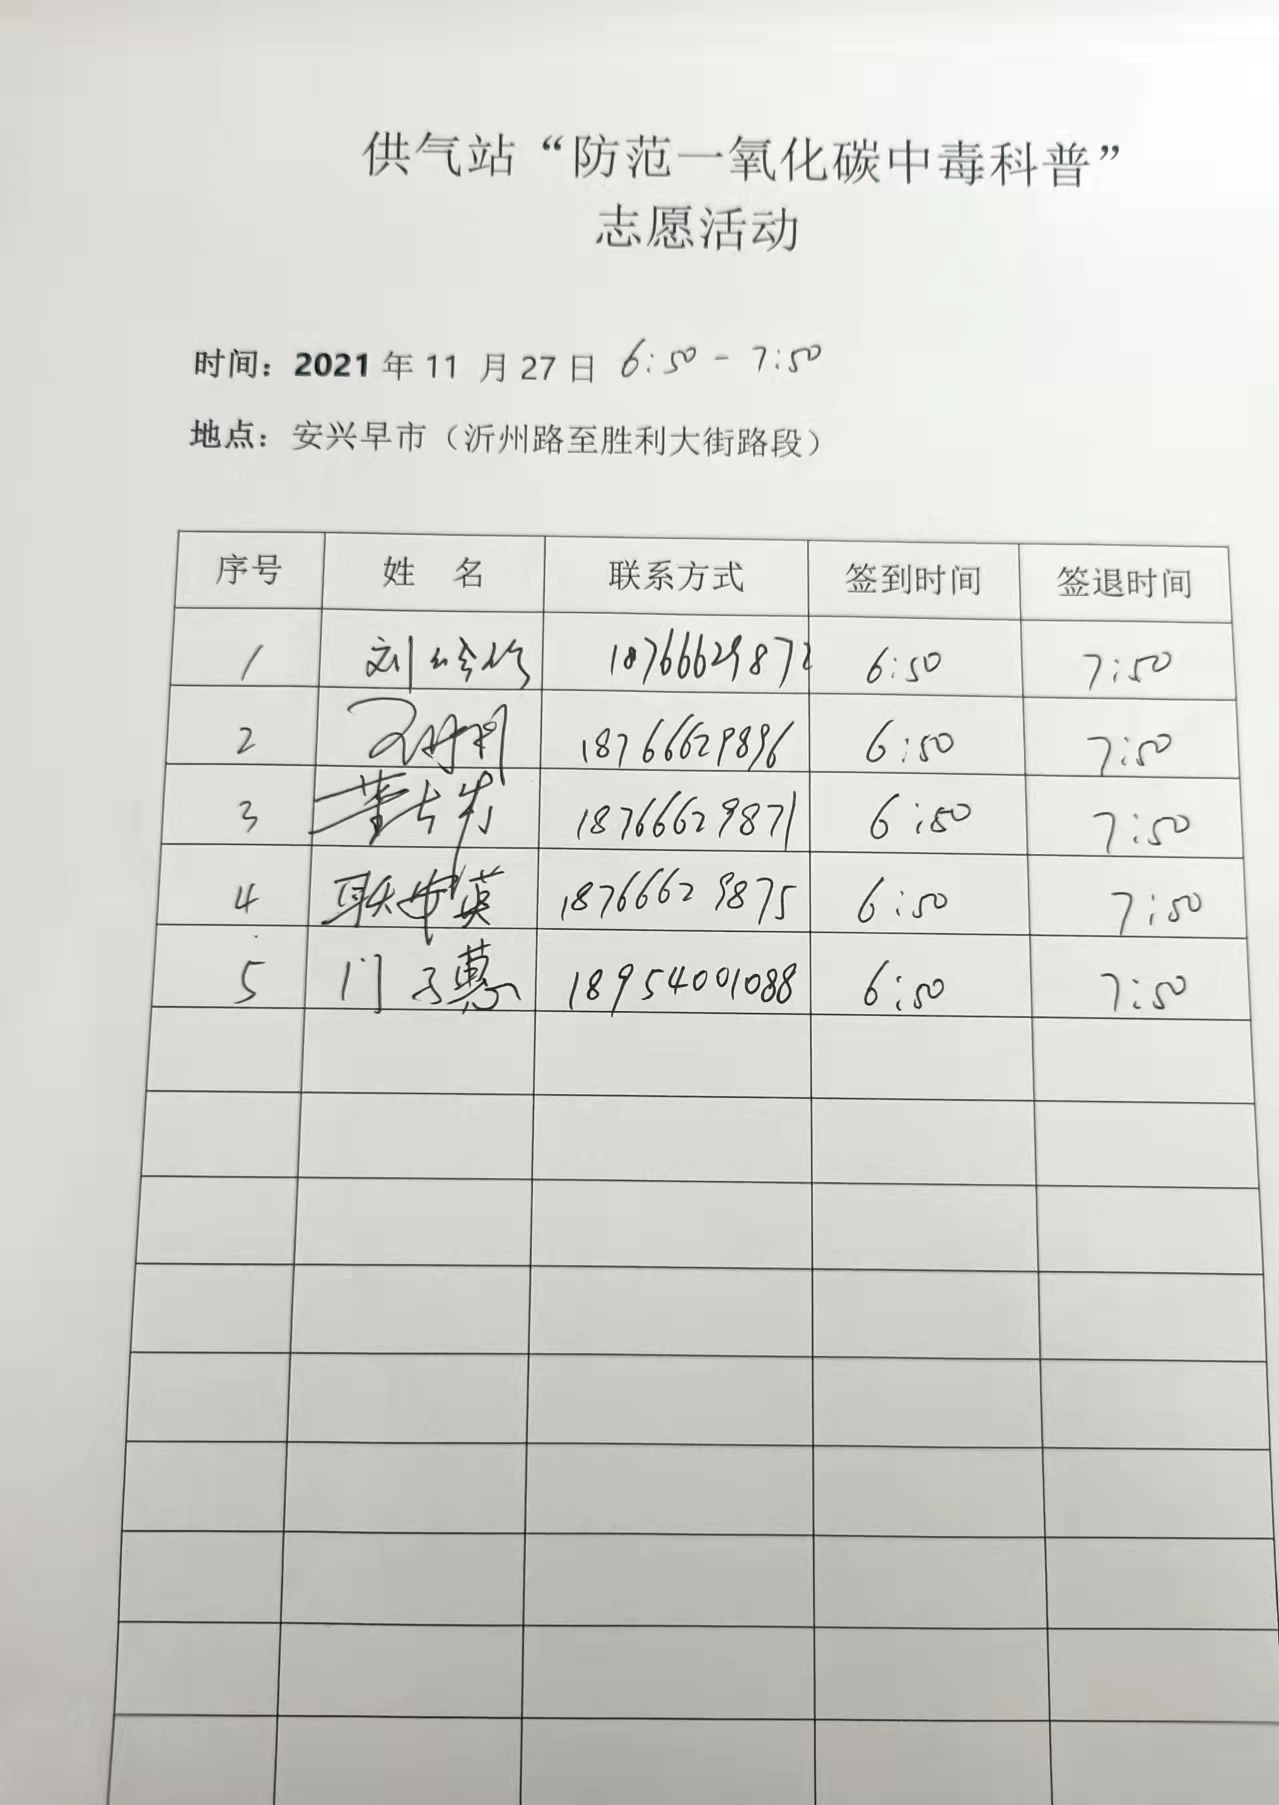 供气站“防范一氧化碳中毒科普”
志愿活动
时间：2021 年 11 月 27 日 6:50 - 7:50
地点：安兴早市（沂州路至胜利大街路段）
序号 姓 名 联系方式 签到时间 签退时间
1 刘 18766629872 6:50 7:50
2 18766629896 6:50 7:50
3 董 18766629871 6:50 7:50
4 英 18766629875 6:50 7:50
5 门子慧 18954001088 6:50 7:50